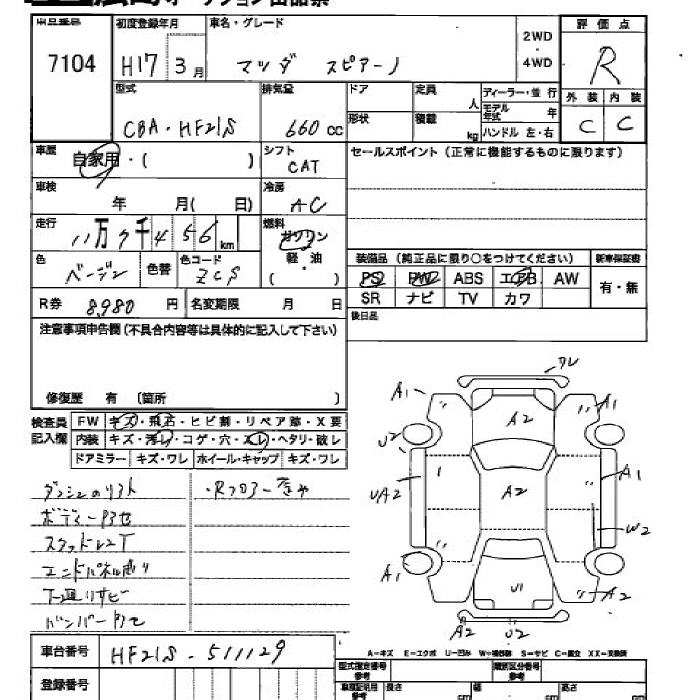 出品番号 初度登録年月 車名・グレード 2WD・4WD 評価点
7104 H17 3月 マツダ スピアーノ R
型式 排気量 ドア 定員 人 ディーラー・並行 外装 内装
CBA・HF21S 660cc 形状 積載 kg モデル年式 年 ハンドル 左・右 C C
車歴 自家用・( ) シフト CAT セールスポイント(正常に機能するものに限ります)
車検 年 月( 日) 冷房 AC
走行 11万7千456km 燃料 ガソリン 軽・油 ( )
色 ベージュ 色替 色コード ZCS 装備品(純正品に限り○をつけてください) 新車保証書
PS PW ABS エアB AW 有・無
R券 8,980円 名変期限 月 日 SR ナビ TV カワ
注意事項申告欄(不具合内容等は具体的に記入して下さい) 後日品
修復歴 有 〔箇所 〕
検査員記入欄 FW キズ・飛石・ヒビ割・リペア跡・X要
内装 キズ・汚レ・コゲ・穴・スレ・ヘタリ・破レ
ドアミラー キズ・ワレ ホイール・キャップ キズ・ワレ
ボディー
エンドパネル
下廻りサビ
バンパー
ワレ
A1 A2 A1
U2
UA2 A2 A1
W2
A1 U1 A2
A2 U2
A-キズ E-エクボ U-凹み W-補修跡 S-サビ C-腐食 XX-交換済
車台番号 HF21S-511129
型式指定番号 参考 類別区分番号 参考
登録番号 車庫証明用 参考 長さ cm 幅 cm 高さ cm